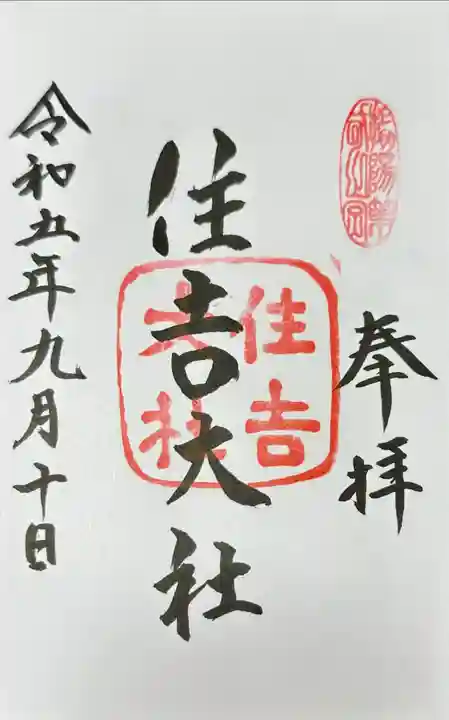 奉拝
住吉大社
住吉
大社
令和五年九月十日